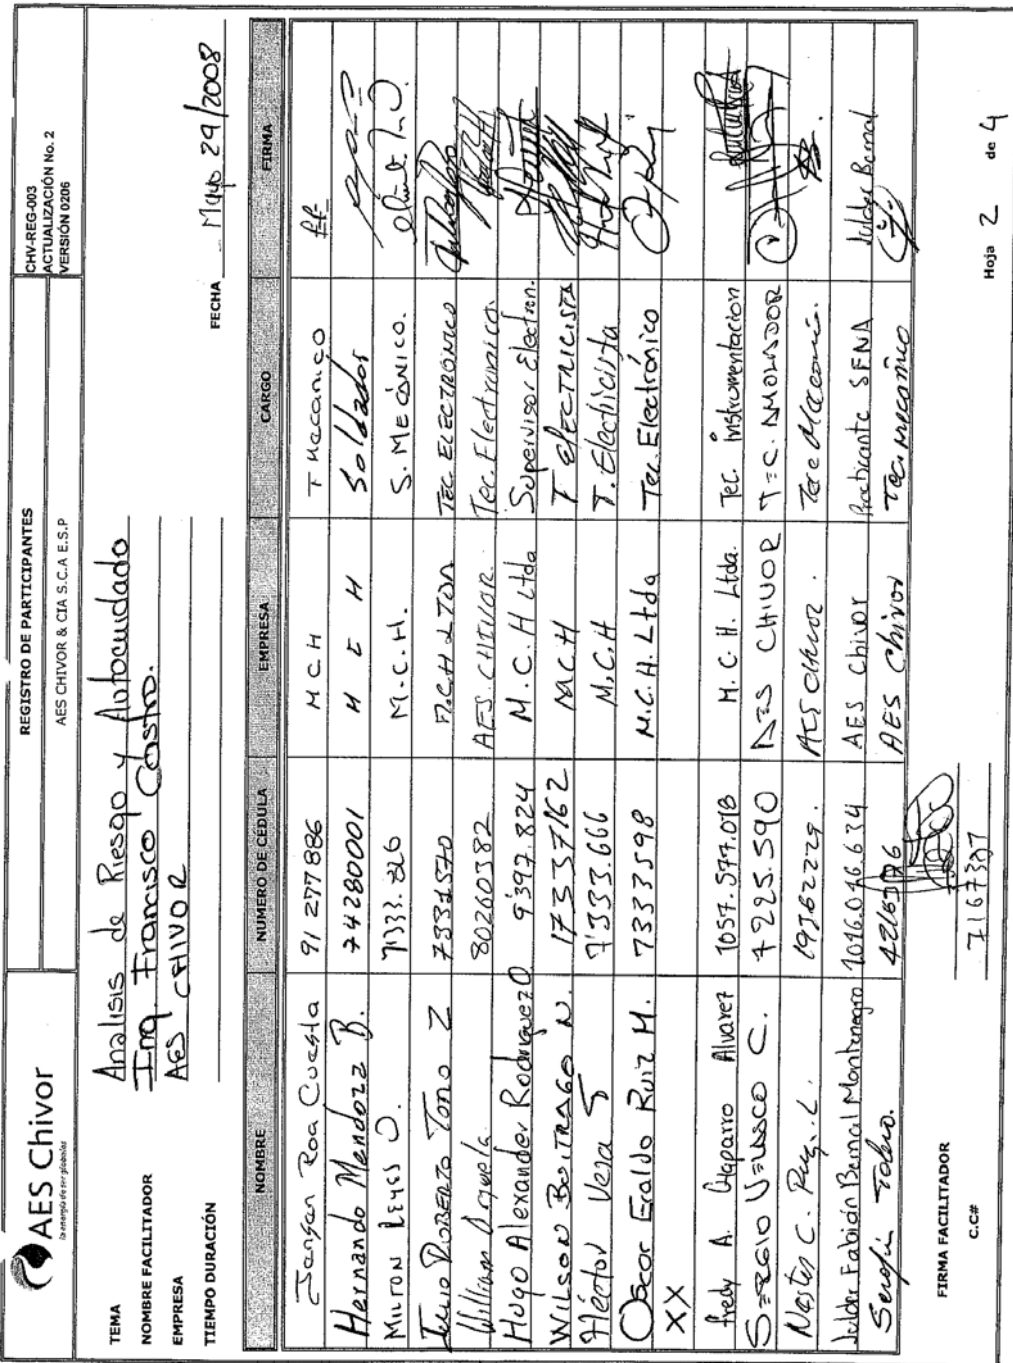 AES Chivor
la energía de ser globales
REGISTRO DE PARTICIPANTES
AES CHIVOR & CIA S.C.A E.S.P
CHV-REG-003
ACTUALIZACIÓN No. 2
VERSIÓN 0206
TEMA Analisis de Riesgo y Autocuidado
FECHA Mayo 29/2008
NOMBRE FACILITADOR Ing. Francisco Castro.
EMPRESA AES CHIVOR
TIEMPO DURACIÓN
NOMBRE NUMERO DE CEDULA EMPRESA CARGO FIRMA
Roa Cuesta 91 277886 M C H T Mecanico
Hernando Mendoza B. 74280001 M C H Soldador
Milton Reyes O. 7333.326 M.C.H. S. MECÁNICO.
Julio Roberto Toro Z 7331570 M.C.H LTDA Tec. ELECTRÓNICO
William 80260382 AES. CHIVOR. Tec. Electronico.
Hugo Alexander Rodriguez O 9'397.824 M.C.H Ltda Supervisor Electron.
WILSON BUITRAGO N. 17337162 M.C.H T ELECTRICISTA
Héctor Vera S 7'333.666 M.C.H T. Electricista
Oscar Eraldo Ruiz M. 7333598 M.C.H. Ltda Tec. Electrónico
XX
Fredy A. Chaparro Alvarez 1057.577.018 M.C.H. Ltda. Tec. Instrumentacion
SERGIO VELASCO C. 4225.590 AES CHIVOR TEC. AMOLADOR
Nestor C. 19362229. AES Chivor. Tec. Mecanico.
Fabián Bernal Montenegro 1016.046.634 AES Chivor Practicante SENA Bernal
Serafin Toloro. AES Chivor Tec. mecanico
FIRMA FACILITADOR
C.C# 7167387
Hoja 2 de 4